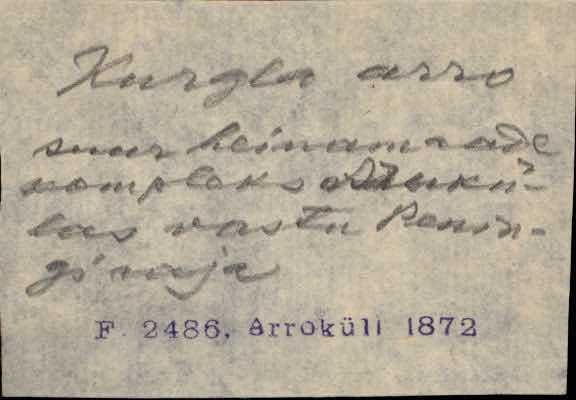 Kurgla arro
suur heinamaade
kompleks Arukü-
las vastu Penin-
gi raja
F. 2486, Arroküll 1872